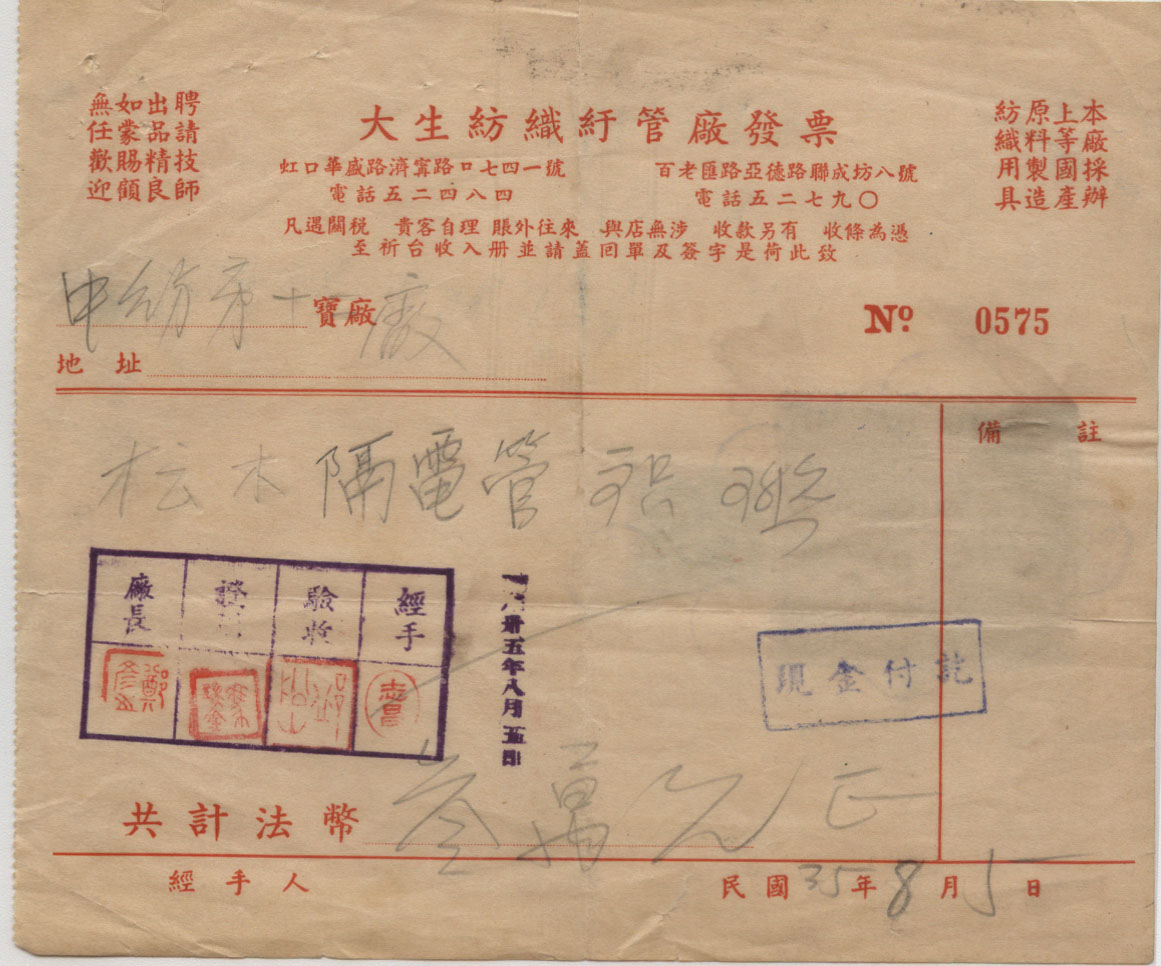 大生紡織紆管廠發票
本廠採辦
上等國產
原料製造
紡織用具
聘請技師
出品精良
如蒙賜顧
無任歡迎
虹口華盛路濟寗路口七四一號
電話五二四八四
百老匯路亞德路聯成坊八號
電話五二七九〇
凡遇關稅 貴客自理 賬外往來 與店無涉 收款另有 收條為憑
至祈台收入册並請蓋回單及簽字是荷此致
申紡第十一廠
寶廠
Nº 0575
地址
備註
松木隔電管
經手
驗收
證
廠長
卅五年八月五
現金付訖
共計法幣 叁萬元正
經手人
民國35年8月5日